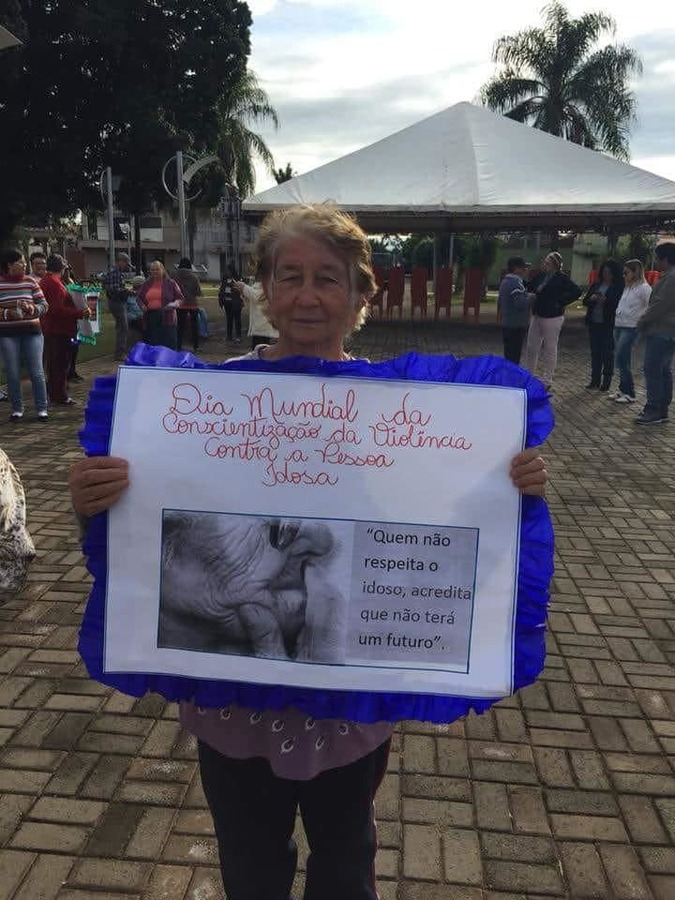 Dia Mundial da
Conscientização da Violência
Contra a Pessoa
Idosa
"Quem não
respeita o
idoso, acredita
que não terá
um futuro".